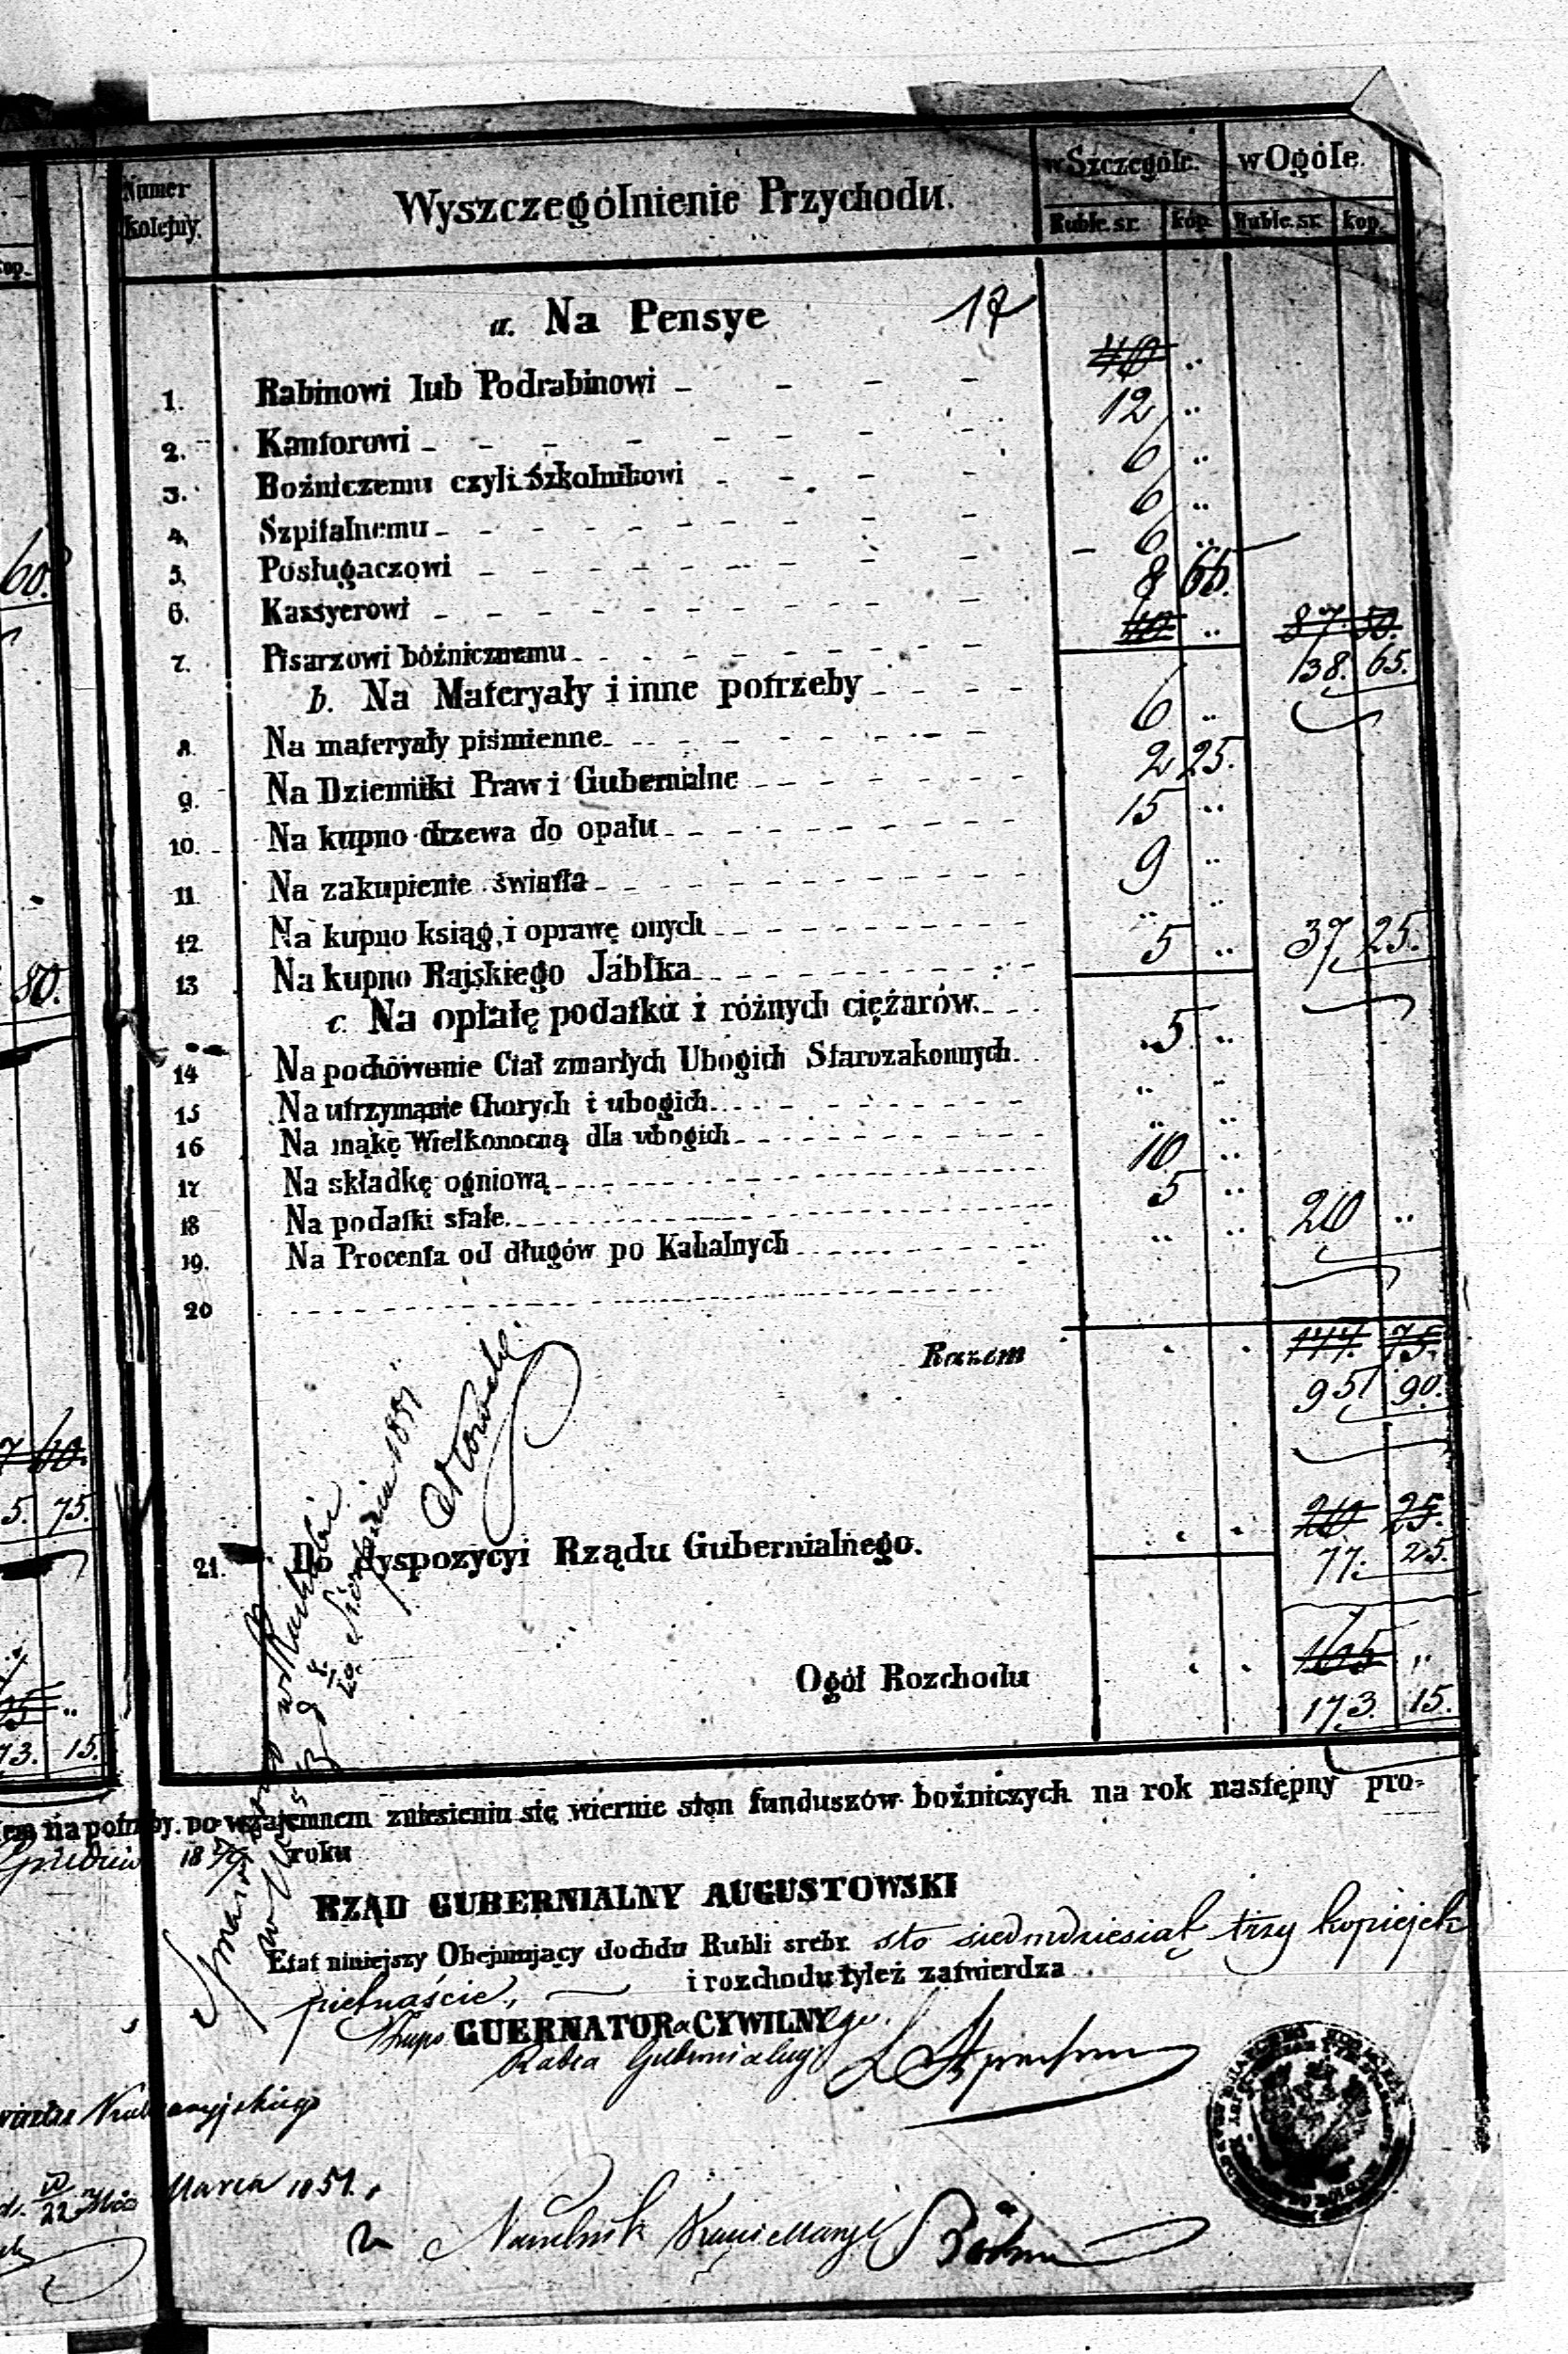 Numer kolejny.
Wyszczególnienie Przychodu.
w Szczególe. w Ogóle.
Ruble. sr. kop. Ruble. sr. kop.
kop.
a. Na Pensye 17
1. Rabinowi lub Podrabinowi - - - - 40 ..
2. Kantorowi - - - - - - - - 12 ..
3. Bożniczemu czyli Szkolnikowi - - - - 6 ..
4. Szpitalnemu - - - - - - - - 6 ..
5. Posługaczowi - - - - - - - - 6 ..
6. Kassyerowi - - - - - - - - 8 66.
7. Pisarzowi bóżnicznemu - - - - - - - 10 .. 87. 50.
138. 65.
b. Na Materyały i inne potrzeby - - - -
8. Na materyały piśmienne - - - - - - - 6 ..
9. Na Dzienniki Praw i Gubernialne - - - - - - 2 25.
10. Na kupno drzewa do opału - - - - - - - 15 ..
11 Na zakupienie światła - - - - - - - - 9 ..
12 Na kupno ksiąg, i oprawę onych - - - - - - .. ..
13 Na kupno Rajskiego Jabłka - - - - - - - 5 .. 37 25.
c. Na opłatę podatku i różnych ciężarów. - - -
14 Na pochówanie Ciał zmarłych Ubogich Starozakonnych. . 5. ..
15 Na utrzymanie Chorych i ubogich - - - - - - .. ..
16 Na mąkę Wielkonocną dla ubogich - - - - - - .. ..
17 Na składkę ogniową - - - - - - - - 10 ..
18 Na podatki stałe. - - - - - - - - 5 .. 20 ..
19. Na Procenta od długów po Kahalnych - - - - - .. ..
20
Razem . . 144. 75.
951 90.
21. Do dyspozycyi Rządu Gubernialnego. . . 20 25.
77. 25.
Ogół Rozchodu . . 165 ..
173. 15.
60.
80.
5. 75.
73. 15.
na potrzeby. po wzajemnem zniesieniu się wiernie stan funduszów bożniczych na rok następny pro-
Grudnia 18 roku
1851
RZĄD GUBERNIALNY AUGUSTOWSKI
Etat niniejszy Obejmujący dochdu Rubli srebr. sto siedmdziesiąt trzy kopiejek
pietnaście, i rozchodu tyleż zatwierdza
GUERNATORa CYWILNYego.
Radca Gubernialny
Marca 1851.
Naczelnik Kancellaryi Böhm